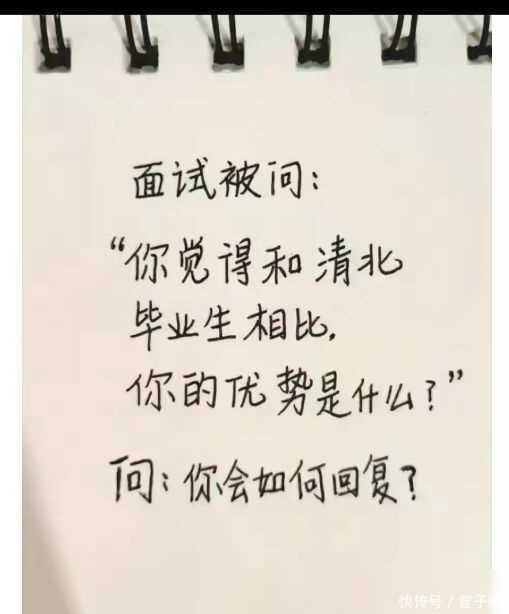 面试被问：
“你觉得和清北
毕业生相比，
你的优势是什么？”
问：你会如何回复？
快传号／萱子